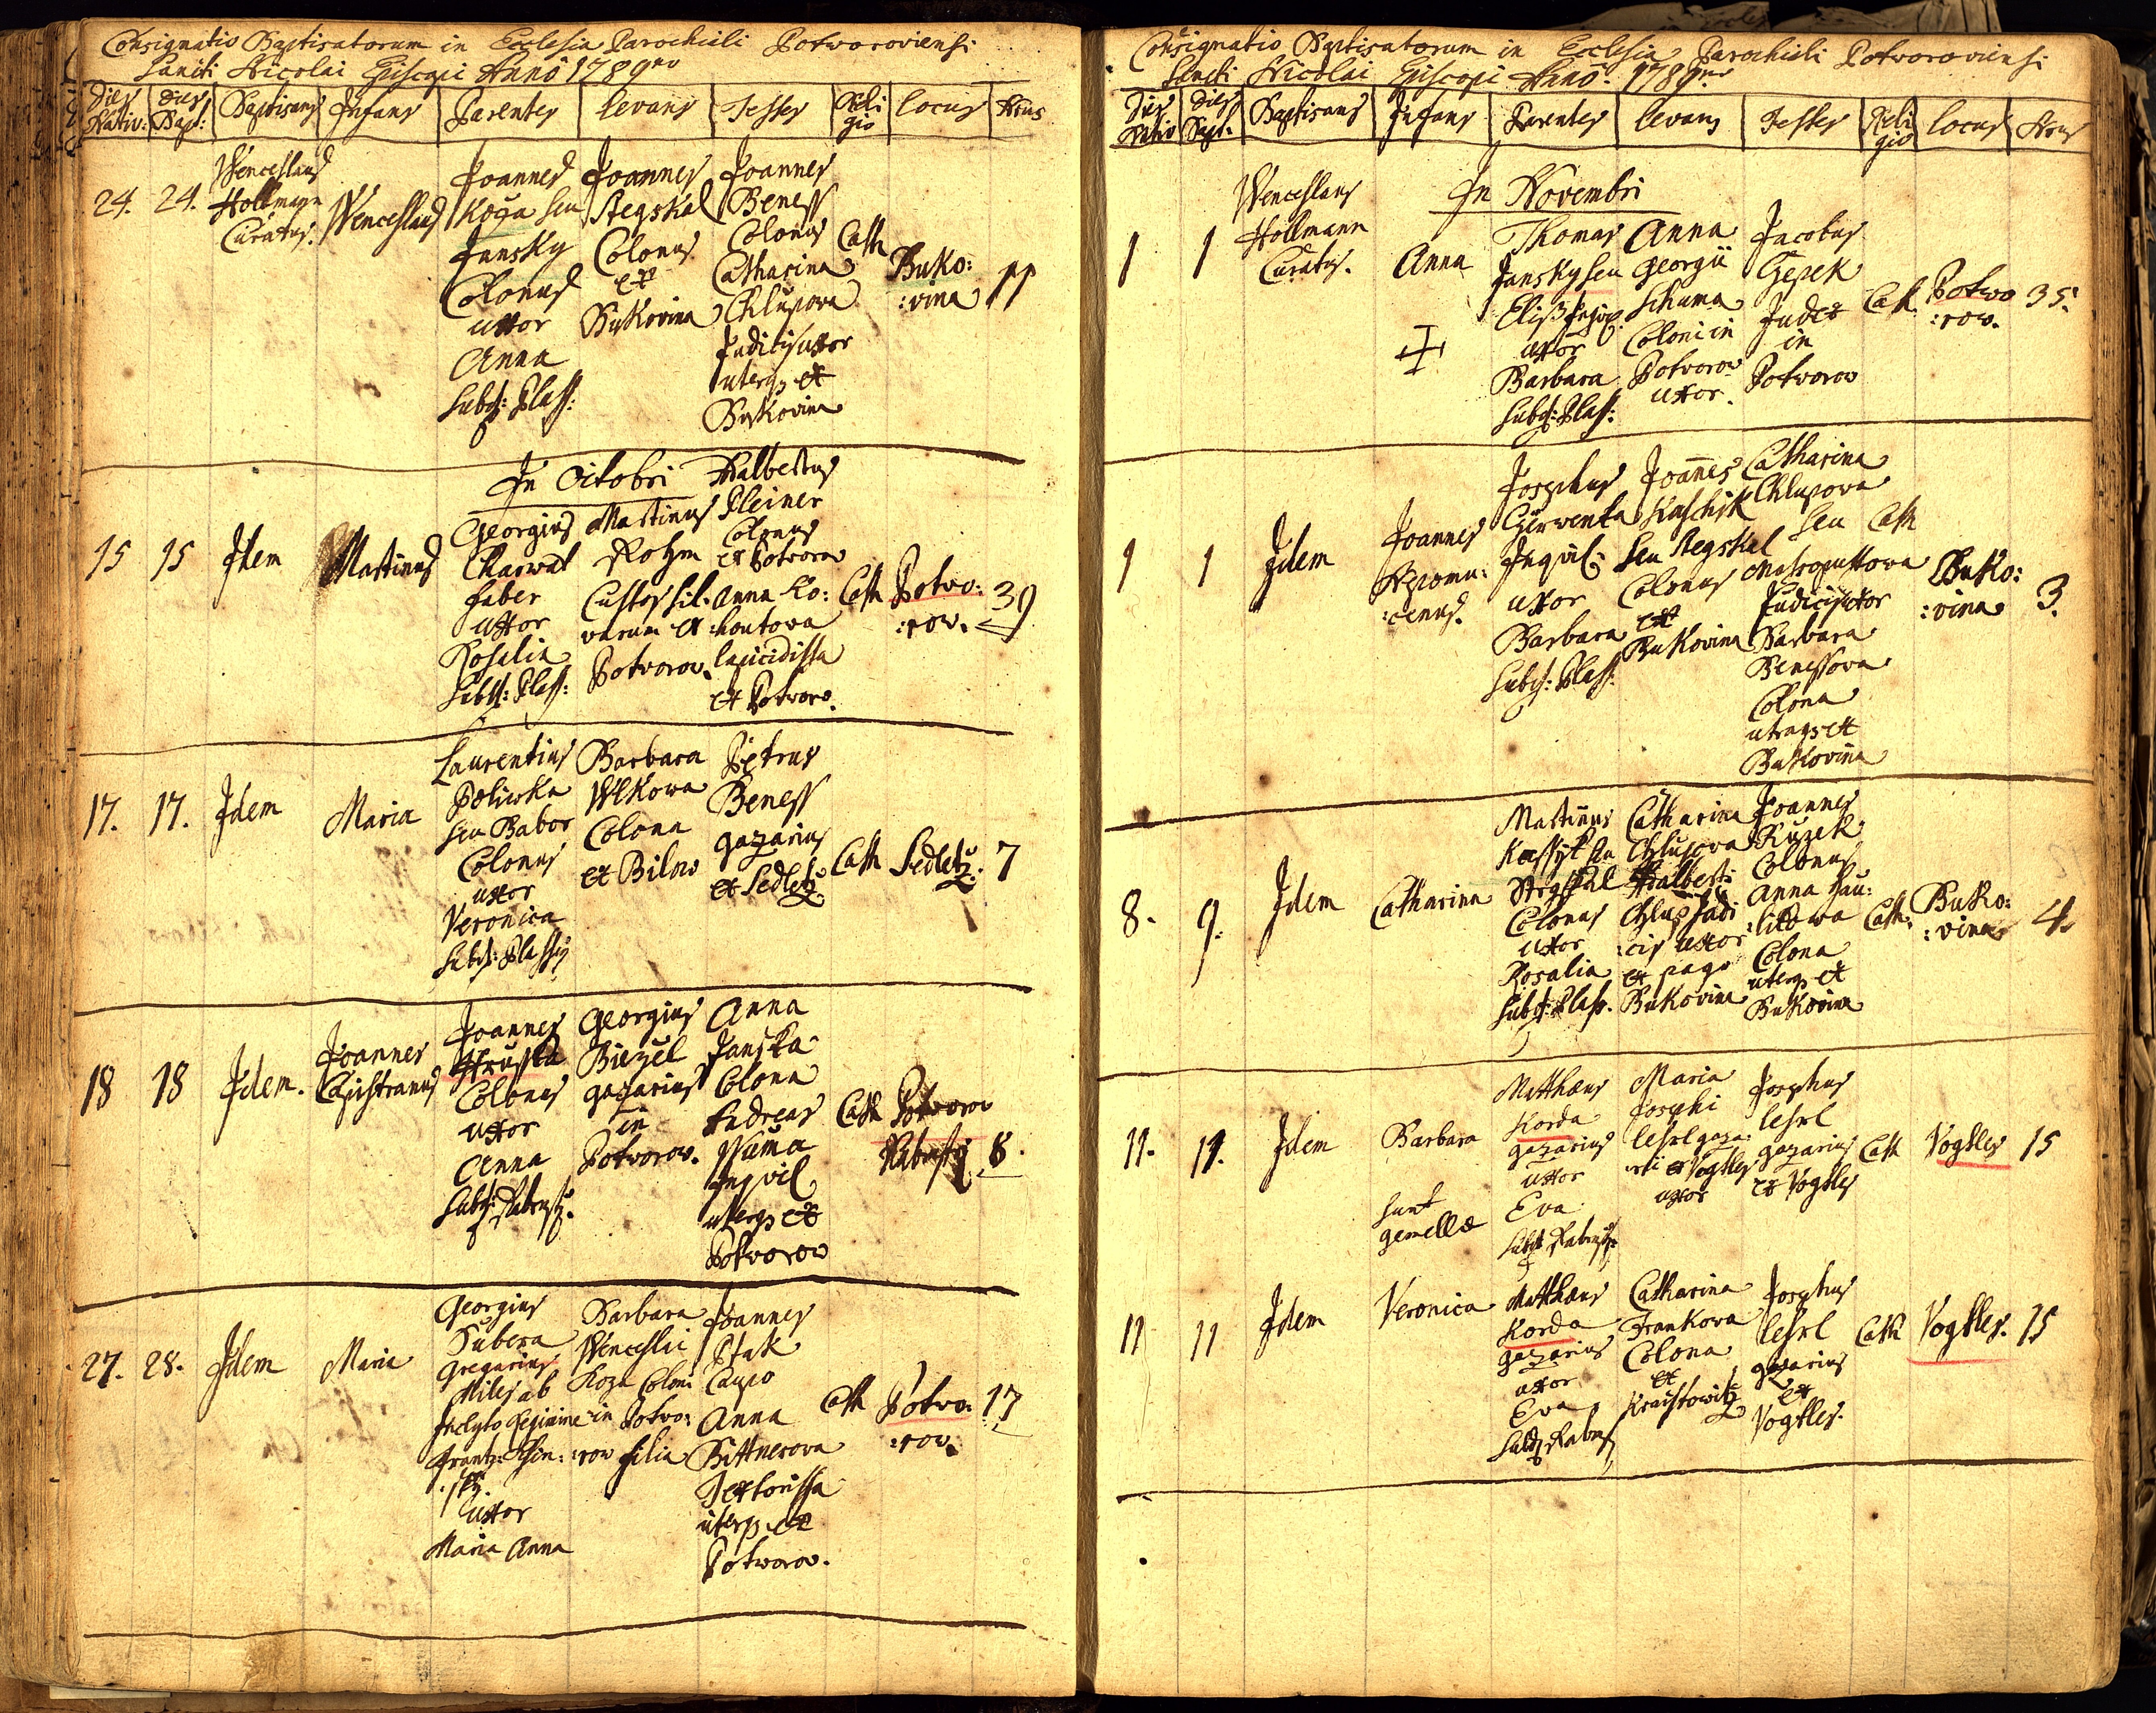 Consignatio Baptisatorum in Ecclesia Parochiali Potvoroviensi
Sancti Nicolai Episcopi Anno 1789no
Dies Nativ: Dies Bapt: Baptisans Infans Parentes Levans Testes Religio Locus Nrus
24. 24. Wenceslaus Hollmann Curatus. Wenceslaus
Joannes
Koza seu
Jansky
Colonus
uxor
Anna
Subd: Plass:
Joannes
Stegskal
Colonus
ex
Bukovina
Joannes
Beness
Colonus
Catharina
Chlupova
Judicis uxor
uterq ex
Bukovina
Cath Buko:
:vina 11
In Octobri
15 15 Idem Martinus
Georgius
Charwat
faber
uxor
Rosalia
Subd: Plass:
Martinus
Rohm
Custos sil:
varum ex
Potvorow.
Adalbertus
Kleiner
Colonus
ex Potvorow
Anna Ko:
:houtova
lapicidissa
ex Potvoro.
Cath Potvo:
:row. 39
17. 17. Idem Maria
Laurentius
Poliwka
seu Babor
Colonus
uxor
Veronica
Subd: Plassy
Barbara
Wlkowa
Colona
ex Bilow
Petrus
Beness
gazarius
ex Sedletz
Cath Sedletz. 7
18 18 Idem. Joannes
Capistranus
Joannes
Hruska
Colonus
uxor
Anna
Subd: Rabenst.
Georgius
Biezel
gazarius
in
Potvorow.
Anna
Janska
Colona
Andreas
Wuma
Inqvil
uterq ex
Potvorow
Cath Potvorow
8.
27. 28. Idem Maria
Georgius
Kubera
Gregarius
Miles ab
Inclyto Regimine
Frantz:
uxor
Maria Anna
Barbara
Wenceslai
Koza Coloni
in Potvo:
:row filia
Joannes
Ptak
Caupo
Anna
Bittnerova
Textorissa
uterq ex
Potworow.
Cath Potvo:
:row. 17
Consignatio Baptisatorum in Ecclesia Parochiali Potvoroviensi
Sancti Nicolai Episcopi Anno 1789no
Dies Nativ Dies Bapt: Baptisans Infans Parentes Levans Testes Religio Locus Nrus
In Novembri
1 1 Wenceslaus
Hollmann
Curatus. Anna
Thomas
Jansky seu
uxor
Barbara
Subd: Plass:
Anna
Georgii
Schuma
Coloni in
Potvorow
uxor.
Jacobus
Gezek
Judex
in
Potvorow
Cath. Potwo
:row. 35.
1 1 Idem Joannes
Nepomu:
:cenus.
Josephus
Czerwenka
Inqvil:
uxor
Barbara
Subd: Plass:
Joannes
Kaschik
seu Stegskal
Colonus
ex
Bukovina
Catharina
Chlupova
seu
Judicis uxor
Barbara
Benessova
Colona
utraq ex
Bukovina
Cath Buko:
:vina 3.
8. 9. Idem Catharina
Martinus
Stegskal
Colonus
uxor
Rosalia
Subd: Plass.
Catharina
Chlupova
Adalberti
Chlup Judi
:cis uxor
ex pago
Bukovina
Joannes
Ruzek
Colonus
Anna Hau:
:litowa
Colona
uterq ex
Bukovina
Cath: Buko:
:vina 4.
11. 11. Idem Barbara
sunt
gemellæ
Matthæus
Korda
gazarius
uxor
Eva
Maria
Josephi
Lehrl gaza:
rii ex Vogtles
uxor
Josephus
Lehrl
gazarius
ex Vogtles
Cath Vogtles 15
11 11 Idem Veronica
Matthæus
Korda
gazarius
uxor
Eva
Catharina
Frankova
Colona
ex
Josephus
Lehrl
gazarius
ex
Vogtles.
Cath Vogtles. 15